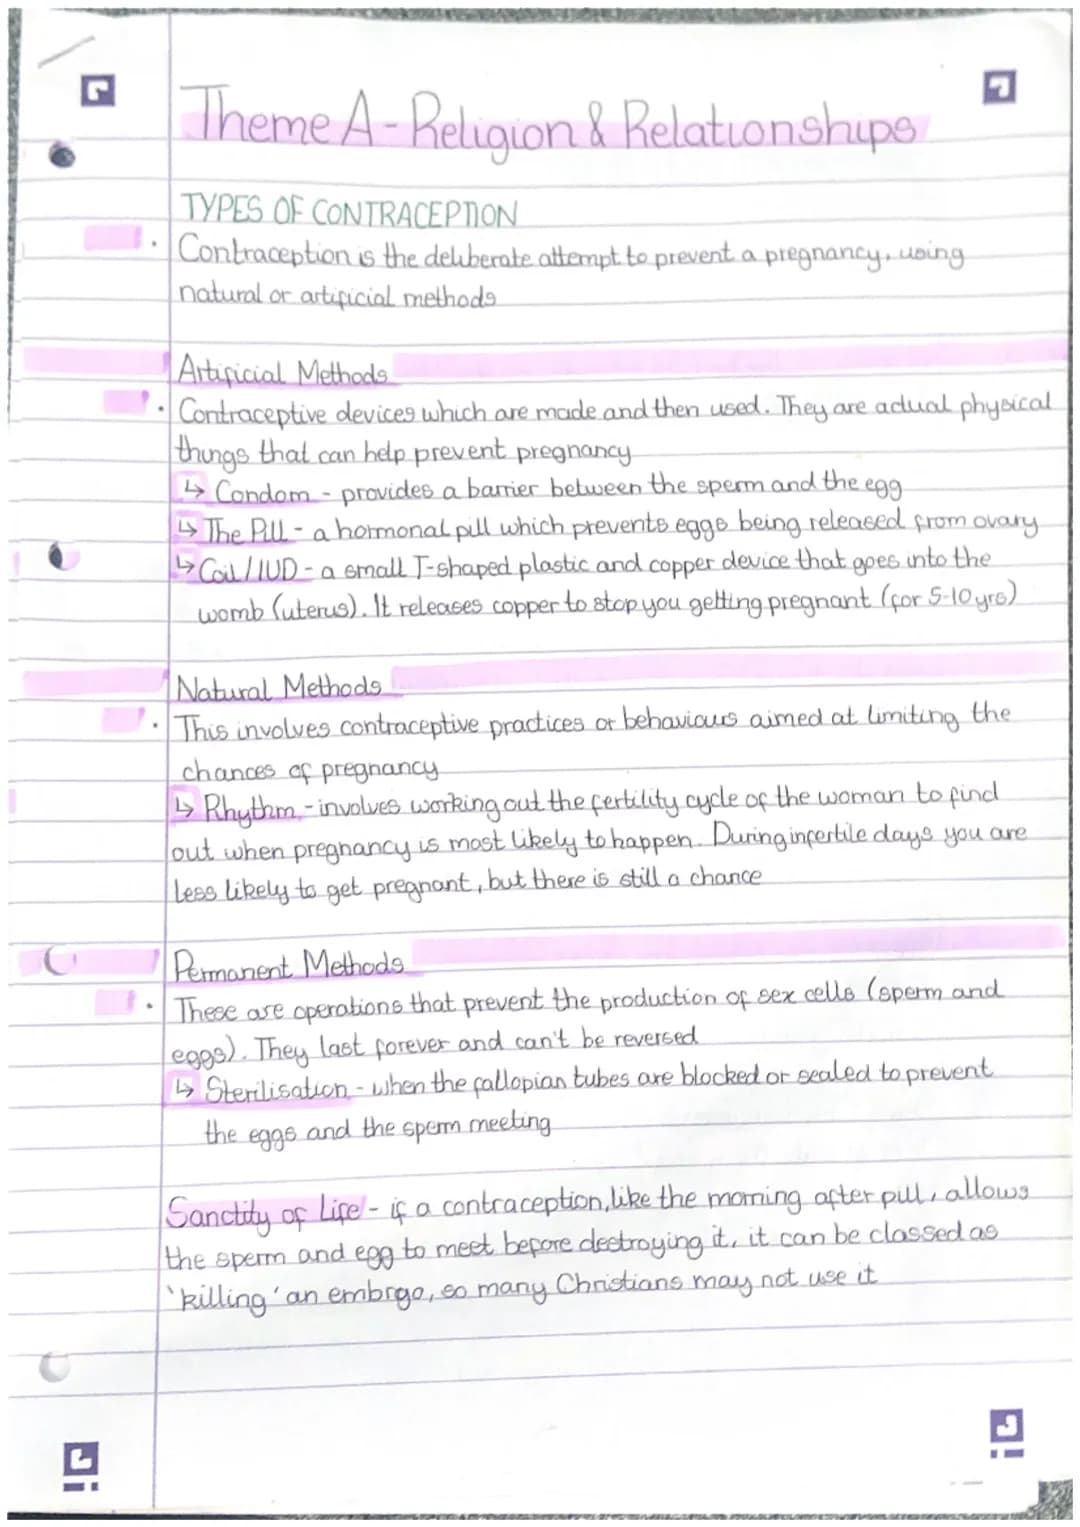 Theme A - Religion & Relationships
TYPES OF CONTRACEPTION
• Contraception is the deliberate attempt to prevent a pregnancy, using
natural or artificial methods
Artificial Methods
• Contraceptive devices which are made and then used. They are actual physical
things that can help prevent pregnancy
↳ Condom - provides a barrier between the sperm and the egg
↳ The Pill - a hormonal pill which prevents eggs being released from ovary
↳ Coil / IUD - a small T-shaped plastic and copper device that goes into the
womb (uterus). It releases copper to stop you getting pregnant (for 5-10 yrs)
Natural Methods
• This involves contraceptive practices or behaviours aimed at limiting the
chances of pregnancy
↳ Rhythm - involves working out the fertility cycle of the woman to find
out when pregnancy is most likely to happen. During infertile days you are
less likely to get pregnant, but there is still a chance
Permanent Methods
• These are operations that prevent the production of sex cells (sperm and
eggs). They last forever and can't be reversed
↳ Sterilisation - when the fallopian tubes are blocked or sealed to prevent
the eggs and the sperm meeting
Sanctity of Life - if a contraception, like the morning after pill, allows
the sperm and egg to meet before destroying it, it can be classed as
'killing' an embryo, so many Christians may not use it